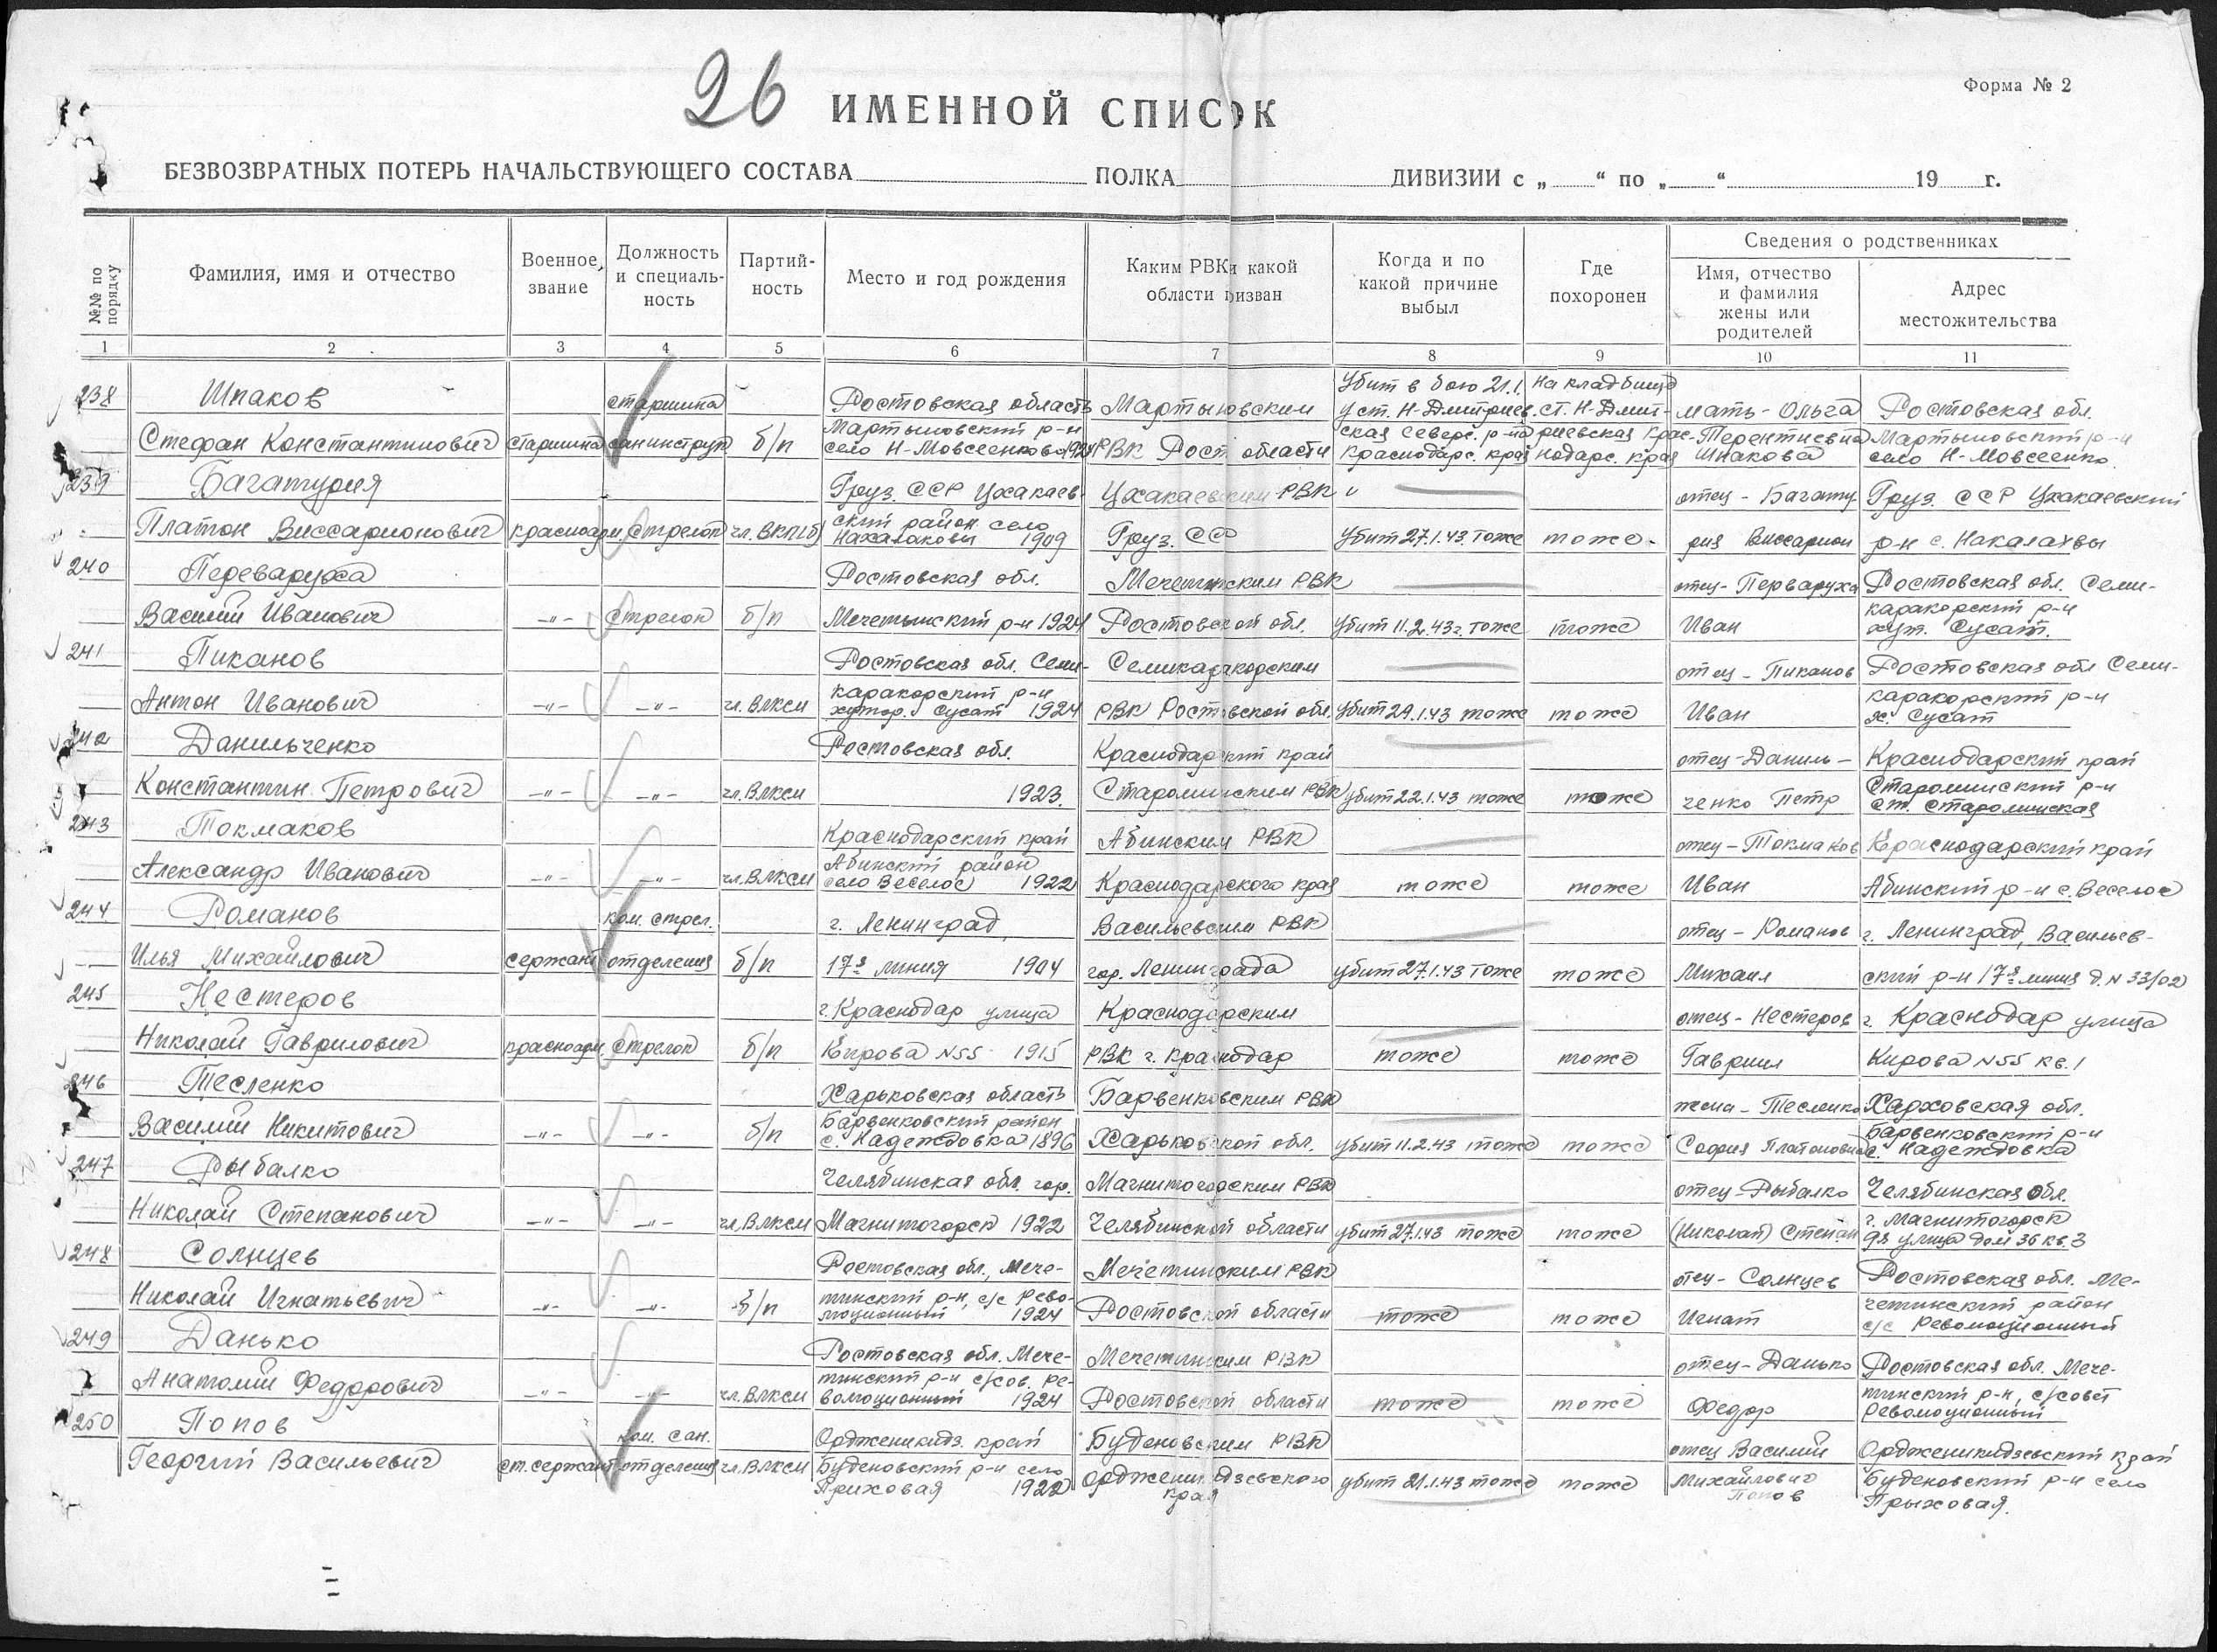 26
Форма № 2
ИМЕННОЙ СПИСОК
БЕЗВОЗВРАТНЫХ ПОТЕРЬ НАЧАЛЬСТВУЮЩЕГО СОСТАВА ПОЛКА ДИВИЗИИ с „ “ по „ “ 19 г.
№№ по порядку
Фамилия, имя и отчество
Военное звание
Должность и специальность
Партийность
Место и год рождения
Каким РВК и какой области призван
Когда и по какой причине выбыл
Где похоронен
Сведения о родственниках
Имя, отчество и фамилия жены или родителей
Адрес местожительства
1 2 3 4 5 6 7 8 9 10 11
238 Шпаков
Стефан Константинович
старшина
старшина санинструк
б/п
Ростовская область
Мартыновский р-н
село Н-Мовсеенково 1924
Мартыновским
РВК Рост области
Убит в бою 21.1.
у ст. Н-Дмитриев.
ская Северс. р-на
Краснодарс. край
На кладбище
ст. Н-Дмит-
риевская Крас-
нодарс. край
мать - Ольга
Терентиевна
Шпакова
Ростовская обл.
Мартыновский р-н
село Н-Мовсеенко.
239 Багатурия
Платон Виссарионович
красноарм
Стрелок
чл. ВКП(б)
Груз. ССР Цхакаев-
ский район село
1909
Цхакаевским РВК
Груз. ССР
Убит 27.1.43. тоже
тоже
отец - Багату
рия Виссарион
Груз. ССР Цхакаевский
р-н с. Накалахвы
240 Переваруха
Василий Иванович
-"-
Стрелок
б/п
Ростовская обл.
Мечетинский р-н 1924
Мечетинским РВК
Ростовской обл.
Убит 11.2.43г. тоже
тоже
отец - Перваруха
Иван
Ростовская обл. Семи-
каракорский р-н
хут. Сусат.
241 Пиканов
Антон Иванович
-"-
-"-
чл. ВЛКСМ
Ростовская обл. Семи-
каракорский р-н
хутор. Сусат 1924
Семикаракорским
РВК Ростовской обл.
Убит 29.1.43 тоже
тоже
отец - Пиканов
Иван
Ростовская обл Семи-
каракорский р-н
х. Сусат
242 Данильченко
Константин Петрович
-"-
-"-
чл. ВЛКСМ
Ростовская обл.
1923.
Краснодарский край
Староминским РВК
убит 22.1.43 тоже
тоже
отец - Даниль-
ченко Петр
Краснодарский край
Староминский р-н
ст. Староминская
243 Токмаков
Александр Иванович
-"-
-"-
чл. ВЛКСМ
Краснодарский край
Абинский район
село Веселое 1922
Абинским РВК
Краснодарского края
тоже
тоже
отец - Токмаков
Иван
Краснодарский край
Абинский р-н с. Веселое
244 Романов
Илья Михайлович
сержант
ком. стрел.
отделения
б/п
г. Ленинград,
17я линия 1904
Васильевским РВК
гор. Ленинграда
убит 27.1.43 тоже
тоже
отец - Романов
Михаил
г. Ленинград, Васильев-
ский р-н 17я линия д. N 33/02
245 Нестеров
Николай Гаврилович
красноарм.
Стрелок
б/п
г. Краснодар улица
Кирова N55 1915
Краснодарским
РВК г. Краснодар
тоже
тоже
отец - Нестеров
Гавриил
г. Краснодар улица
Кирова N55 кв. 1
246 Тесленко
Василий Никитович
-"-
-"-
б/п
Харьковская область
Барвенковский район
с. Надеждовка 1896
Барвенковским РВК
Харьковской обл.
убит 11.2.43 тоже
тоже
жена - Тесленко
София Платоновна
Харховская обл.
Барвенковский р-н
с. Надеждовка
247 Рыбалко
Николай Степанович
-"-
-"-
чл. ВЛКСМ
Челябинская обл. гор.
Магнитогорск 1922
Магнитогорским РВК
Челябинской области
убит 27.1.43 тоже
тоже
отец - Рыбалко
(Николай) Степан
Челябинская обл.
г. Магнитогорск
9я улица дом 36 кв. 3
248 Солнцев
Николай Игнатьевич
-"-
-"-
б/п
Ростовская обл., Мече-
тинский р-н, с/с Рево-
люционный 1924
Мечетинским РВК
Ростовской области
тоже
тоже
отец - Солнцев
Игнат
Ростовская обл. Ме-
четинский район
с/с Революционный
249 Данько
Анатолий Федорович
-"-
-"-
чл. ВЛКСМ
Ростовская обл. Мече-
тинский р-н с/сов. Ре-
волюционный 1924
Мечетинским РВК
Ростовской области
тоже
тоже
отец - Данько
Федор
Ростовская обл. Мече-
тинский р-н, с/совет
Революционный
250 Попов
Георгий Васильевич
ст. сержант
ком. сан.
отделения
чл. ВЛКСМ
Орджоникидз. край
Буденовский р-н село
Приховая 1922
Буденовским РВК
Орджоникидзевского
края
убит 21.1.43 тоже
тоже
отец Василий
Михайлович
Попов
Орджоникидзевский край
Буденовский р-н село
Прыховая.